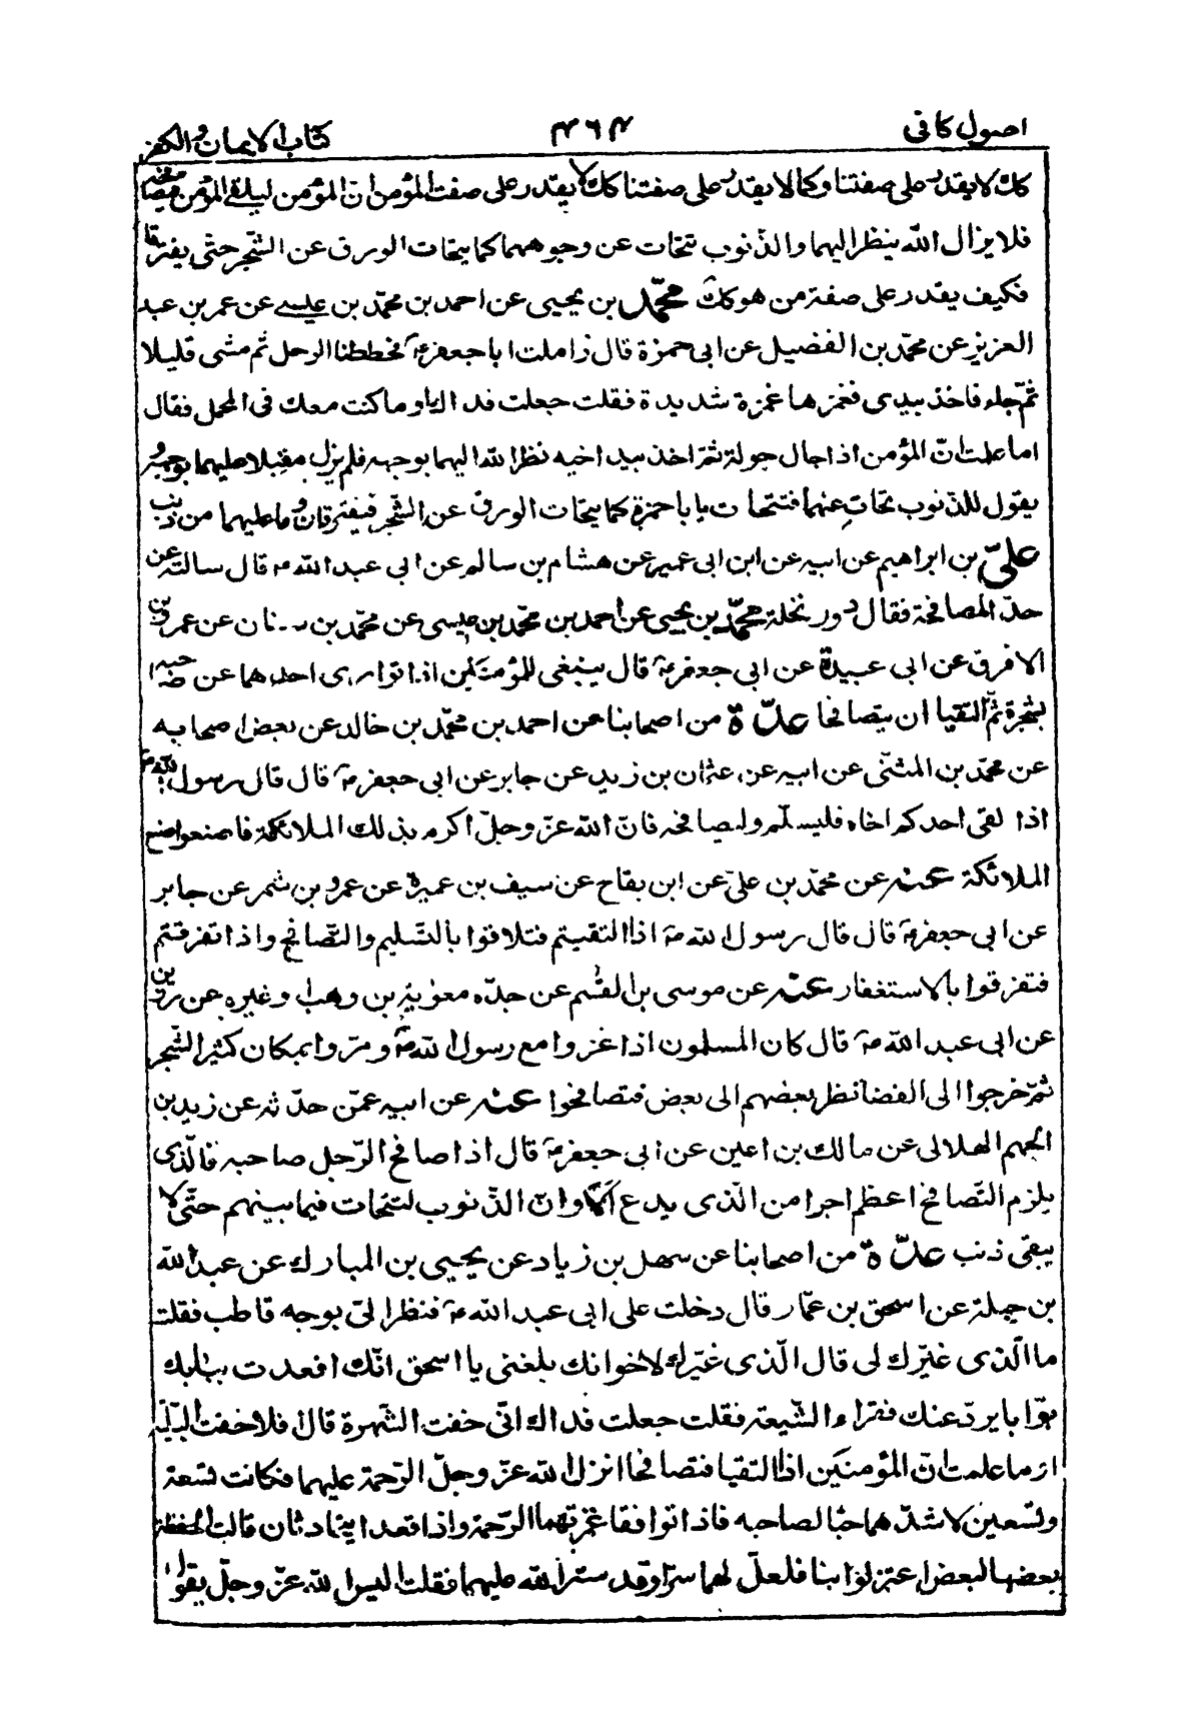 اصول كافى ٤٦٤ كتاب الايمان والكفر
كك لا يقدر على صفتنا وكما لا يقدر على صفتنا كك لا يقدر على صفة المؤمن ان المؤمن ليلقى المؤمن فيصافحه
فلا يزال الله ينظر اليهما والذنوب تتحات عن وجوههما كما يتحات الورق عن الشّجر حتّى يفترقا
فكيف يقدر على صفة من هو كك محمّد بن يحيى عن احمد بن محمّد بن عيسى عن عمر بن عبد
العزيز عن محمّد بن الفضيل عن ابى حمزة قال زاملت ابا جعفر ع فحططنا الرحل ثم مشى قليلا
ثمّ جاء فاخذ بيدى فغمزها غمزة شديدة فقلت جعلت فداك او ما كنت معك فى المحمل فقال
اما علمت انّ المؤمن اذا جال جولة ثمّ اخذ بيد اخيه نظر الله اليهما بوجهه فلم يزل مقبلا عليهما بوجهه و
يقول للذنوب تحات عنهما فتتحات يا با حمزة كما يتحات الورق عن الشّجر فيفترقان وما عليهما من ذنب
علىّ بن ابراهيم عن ابيه عن ابن ابى عمير عن هشام بن سالم عن ابى عبد الله ع قال سالته عن
حدّ المصافحة فقال دور نخلة محمّد بن يحيى عن احمد بن محمّد بن عيسى عن محمّد بن سنان عن عمرو بن
الافرق عن ابى عبيدة عن ابى جعفر ع قال ينبغى للمؤمنين اذا توارى احدهما عن صاحبه
بشجرة ثمّ التقيا ان يتصافحا عدّة من اصحابنا عن احمد بن محمّد بن خالد عن بعض اصحابه
عن محمّد بن المثنّى عن ابيه عن عثمان بن زيد عن جابر عن ابى جعفر ع قال قال رسول الله ص
اذا لقى احدكم اخاه فليسلّم وليصافحه فانّ الله عزّ وجلّ اكرم بذلك الملائكة فاصنعوا صنع
الملائكة عنه عن محمّد بن علىّ عن ابن بقاح عن سيف بن عميرة عن عمرو بن شمر عن جابر
عن ابى جعفر ع قال قال رسول الله ص اذا التقيتم فتلاقوا بالتّسليم والتّصافح واذا تفرقتم
فتفرقوا بالاستغفار عنه عن موسى بن القسم عن جدّه معوية بن وهب او غيره عن رزين
عن ابى عبد الله ع قال كان المسلمون اذا غزوا مع رسول الله ص ومرّوا بمكان كثير الشّجر
ثمّ خرجوا الى الفضا نظر بعضهم الى بعض فتصافحوا عنه عن ابيه عمّن حدّثه عن زيد بن
الجهم الهلالى عن مالك بن اعين عن ابى جعفر ع قال اذا صافح الرّجل صاحبه فالّذى
يلزم التّصافح اعظم اجرا من الّذى يدع الا وانّ الذّنوب لتتحات فيما بينهم حتّى لا
يبقى ذنب عدّة من اصحابنا عن سهل بن زياد عن يحيى بن المبارك عن عبد الله
بن جبلة عن اسحق بن عمّار قال دخلت على ابى عبد الله ع فنظر الىّ بوجه قاطب فقلت
ما الّذى غيّرك لى قال الّذى غيّرك لاخوانك بلغنى يا اسحق انّك اقعدت ببابك
بوّابا يردّ عنك فقراء الشّيعة فقلت جعلت فداك انّى خفت الشّهرة قال فلا خفت البليّة
او ما علمت انّ المؤمنين اذا التقيا فتصافحا انزل الله عزّ وجلّ الرّحمة عليهما فكانت تسعة
وتسعين لاشدّهما حبّا لصاحبه فاذا توافقا غمرتهما الرّحمة واذا قعدا يتحادثان قالت الحفظة
بعضها لبعض اعتزلوا بنا فلعلّ لهما سرّا وقد ستر الله عليهما فقلت اليس الله عزّ وجلّ يقول